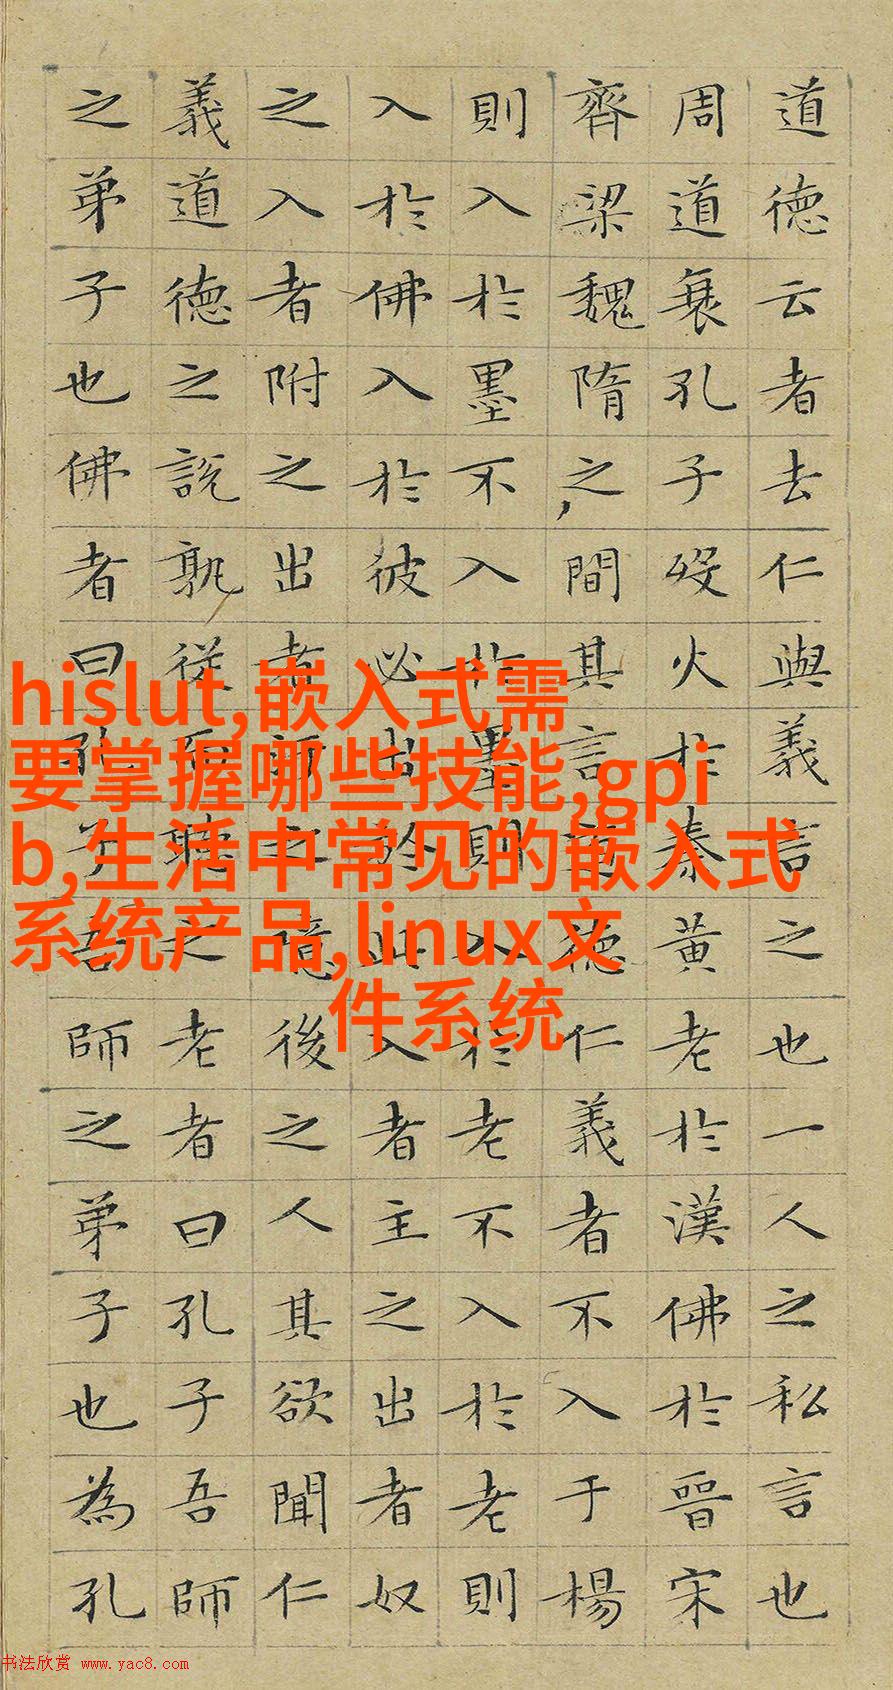 道德云者去仁與義言之也一人之私言也
周道衰孔子殁火於秦黄老於漢佛於晉宋
齊梁魏隋之間其言道德仁義者不入于楊
則入於墨不入於墨則入於老不入於老則
入於佛入於彼必出於此入者主之出者奴
之入者附之出者之噫後之人其欲聞仁
義道德之說孰從而聽之老者曰孔子吾師
之弟子也佛者曰孔子吾師之弟子也為孔
hislut,嵌入式需
要掌握哪些技能,gpi
b,生活中常见的嵌入式
系统产品,linux文
件系统
书法欣赏 www.yac8.com